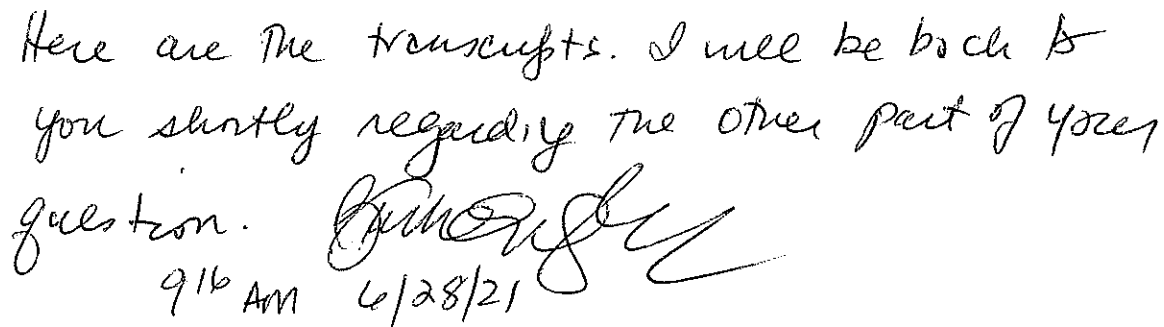 Here are the transcripts. I will be back to
you shortly regarding the other part of your
question.
9:16 AM 6/28/21